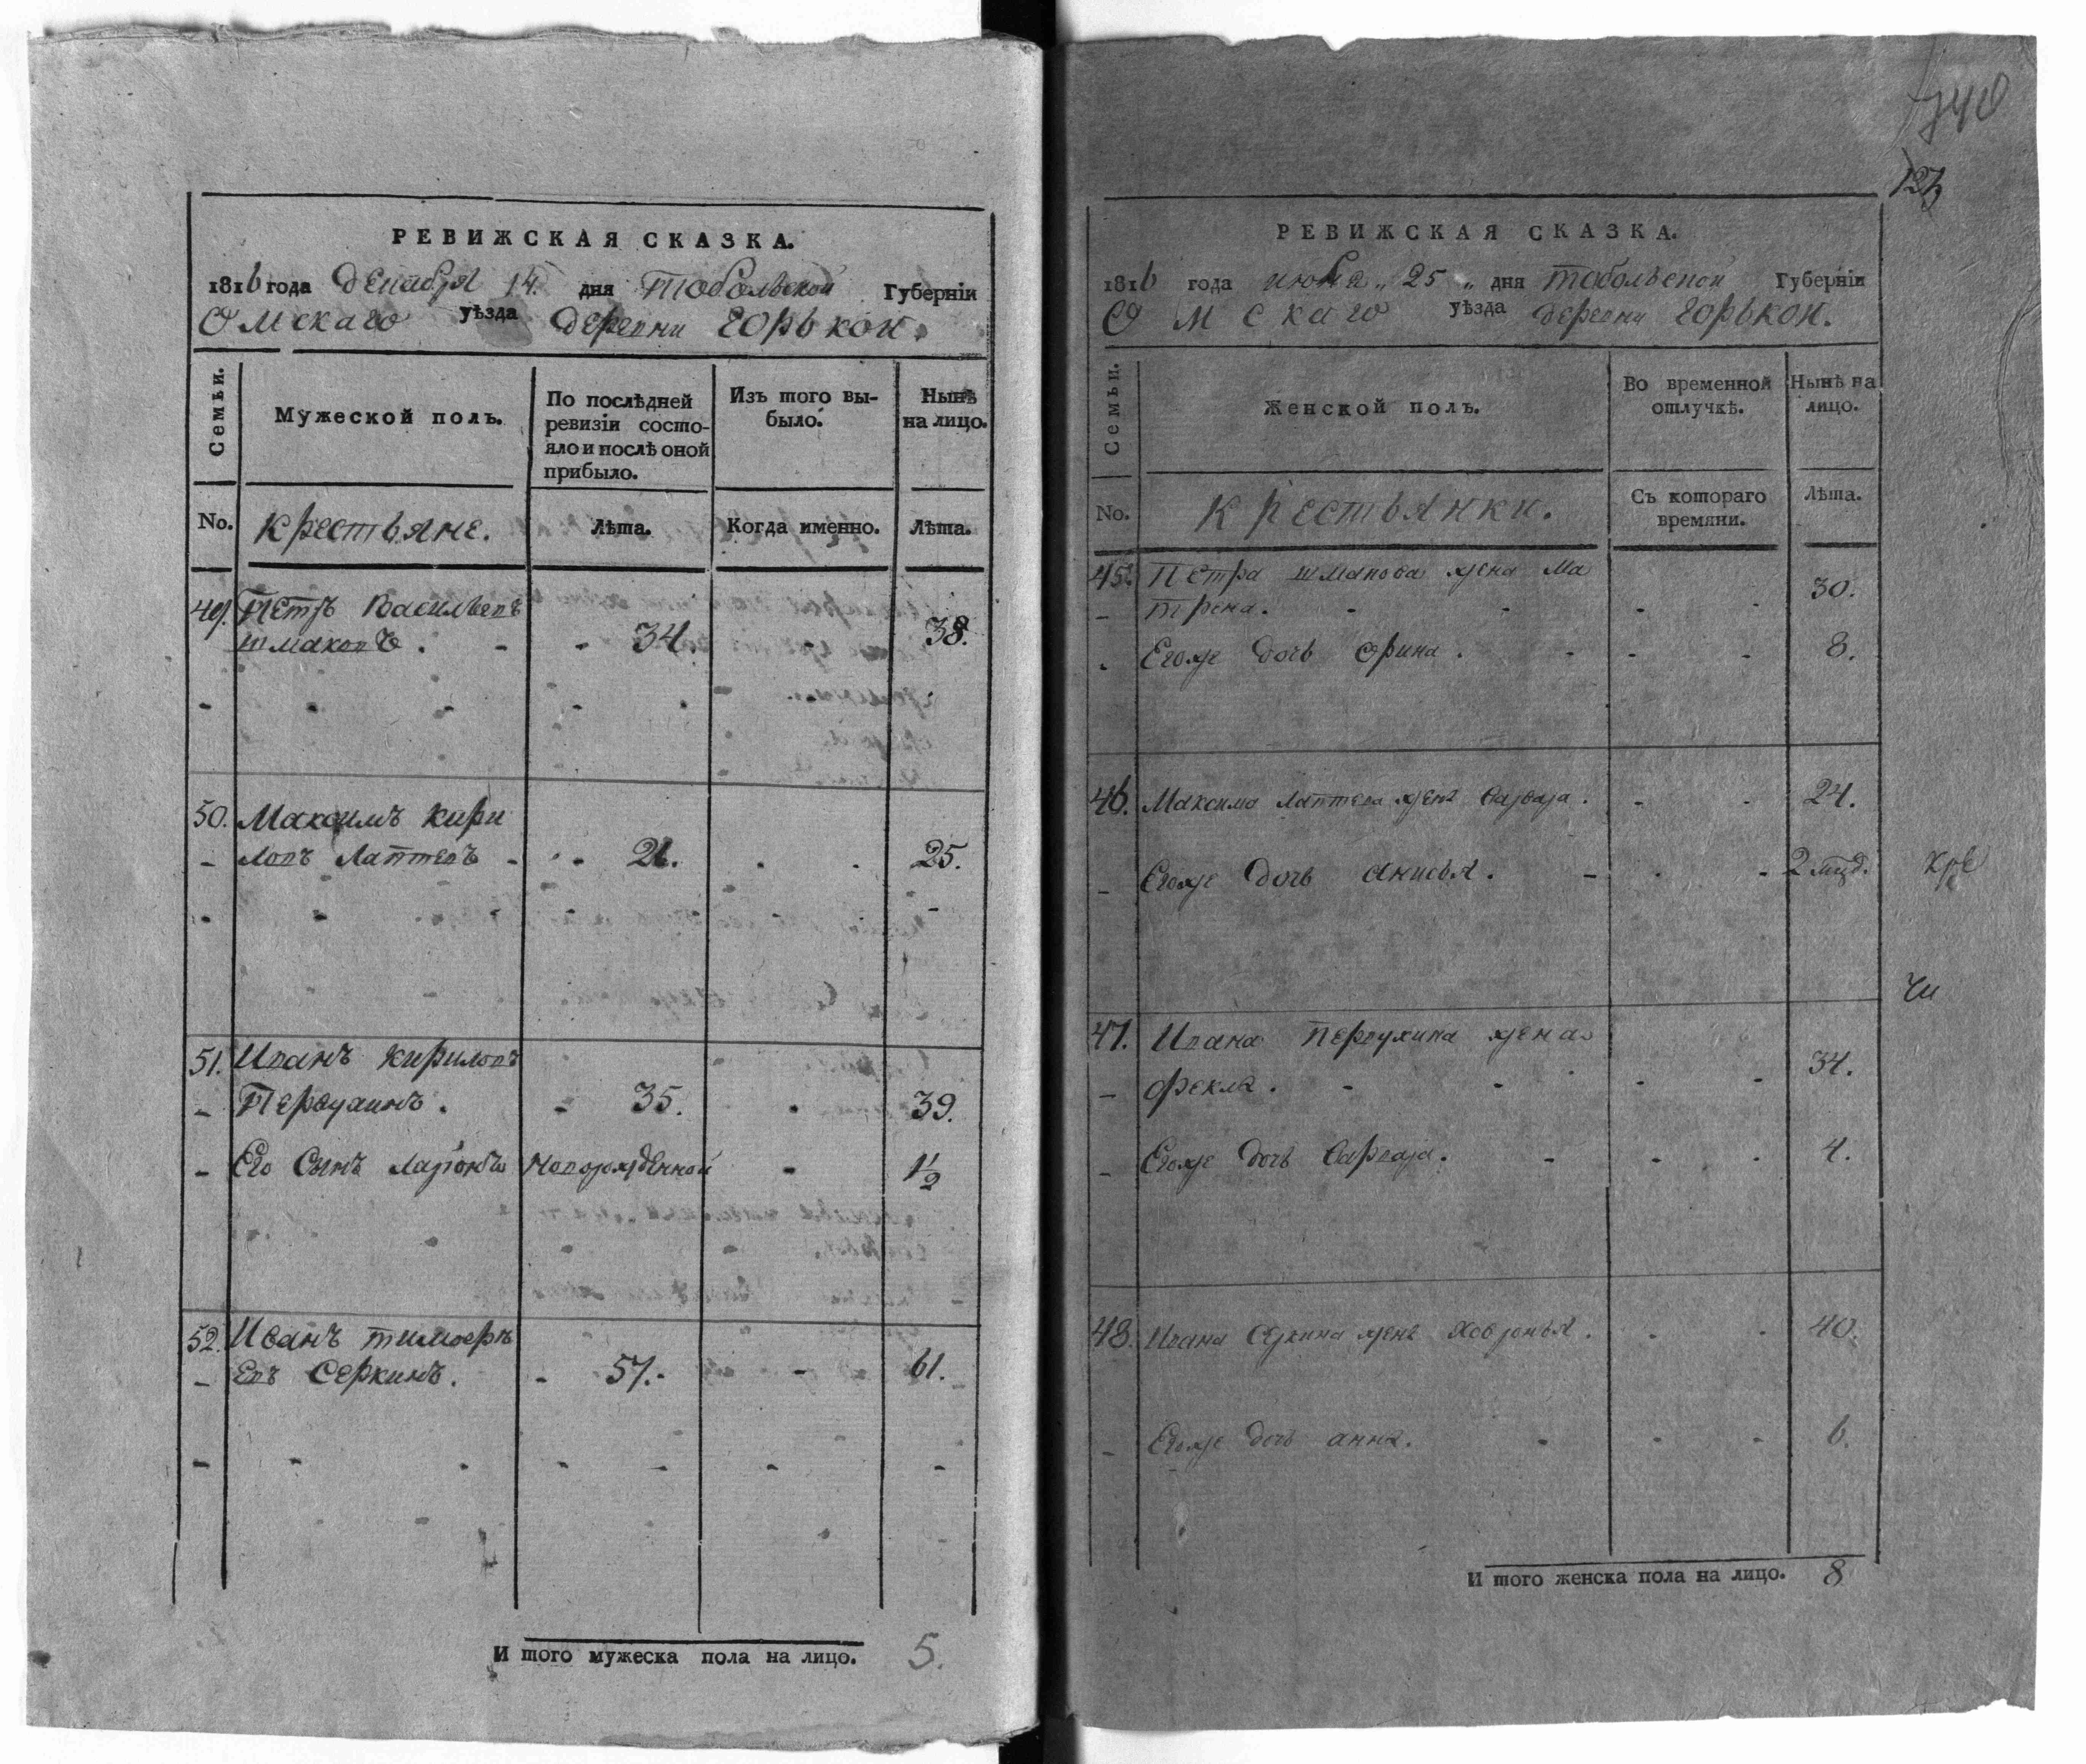 РЕВИЖСКАЯ СКАЗКА.
1816 года декабря 14. дня Тобольской Губерніи
Омскаго уѣзда деревни Горькой.
Семьи.
Мужеской полъ.
По послѣдней
ревизіи состо-
яло и послѣ оной
прибыло.
Изъ того вы-
было.
Нынѣ
на лицо.
No.
крестьяне.
Лѣта.
Когда именно.
Лѣта.
49. Петръ Васильевъ
шмаковъ. - - 34. 38.
50. Максимъ кири
- ловъ Лаптевъ - - 21. 25.
51. Иванъ кириловъ
- Первухинъ. - 35. 39.
- Его Сынъ Ларіонъ Новорожденной - 1½
52. Иванъ тимофе
- евъ Серкинъ. - 57. - 61.
И того мужеска пола на лицо. 5.
740
123
РЕВИЖСКАЯ СКАЗКА.
1816 года июня „ 25 „ дня тобольской Губерніи
Омскаго уѣзда деревни Горькой.
Семьи.
Женской полъ.
Во временной
отлучкѣ.
Нынѣ на
лицо.
No.
крестьянки.
Съ котораго
времяни.
Лѣта.
45. Петра шмакова жена Ма
- трена. - - - - 30.
Егоже дочь Орина. - - - 8.
46. Максима Лаптева жена Варвара. - - 24.
- Егоже дочь Анисья. - - - 2 мцд.
47. Ивана Первухина жена
- Фекла. - - - - 34.
- Егоже дочь Варвара. - - - 4.
48. Ивана Серкина жена Хавронья. - - 40.
- Егоже дочь анна. - - - 6.
И того женска пола на лицо. 8